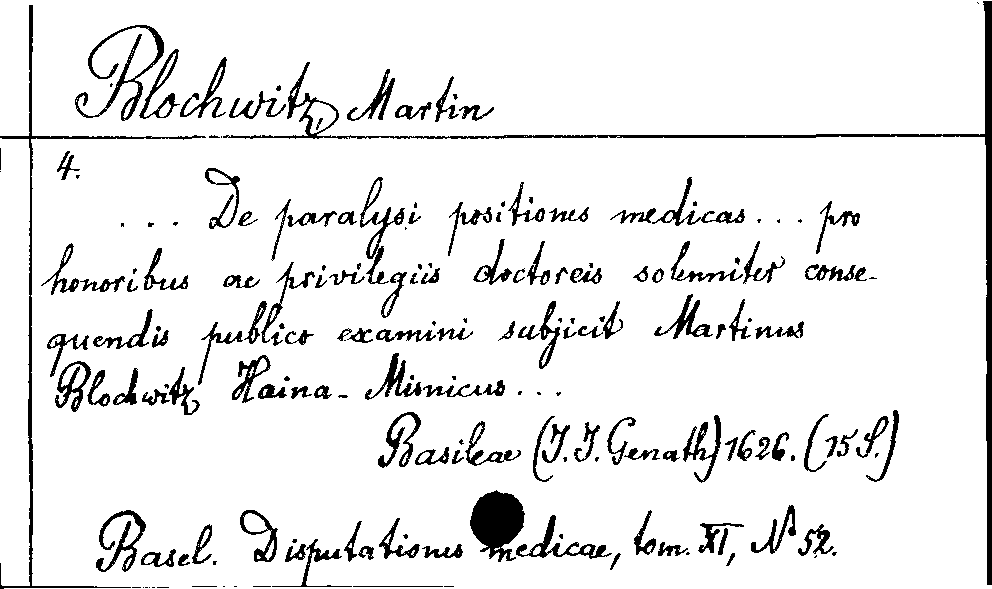 Blochwitz, Martin
4.
... De paralysi positiones medicas... pro
honoribus ac privilegiis doctoreis solenniter conse-
quendis publico examini subjicit Martinus
Blochwitz Haina-Misnicus...
Basileae (J. J. Genath) 1626. (15 S.)
Basel. Disputationes medicae, tom. XI, No 52.